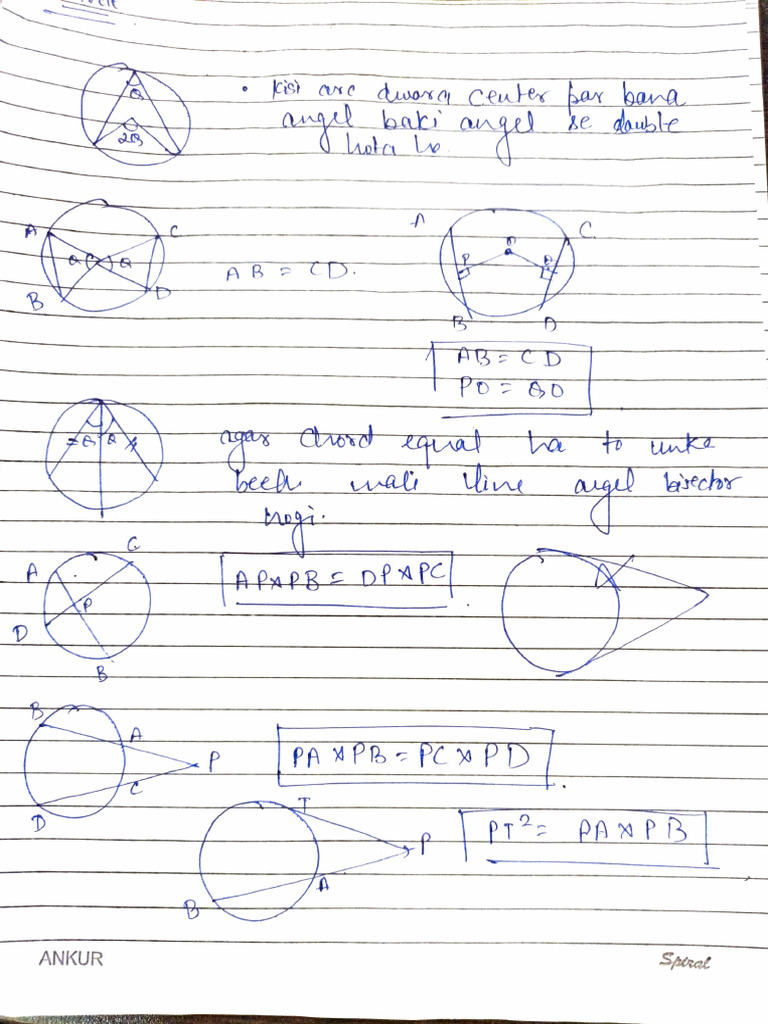 Q
2Q
• Kisi arc dwara center par bana
angel baki angel se dauble
hota ha.
A C
Q Q
B D
AB = CD.
A C.
P
B D
AB = CD
PO = QO
Q Q
agar Chord equal ha to unke
beech wali line angel bisector
hogi.
A C
P
D
B
AP×PB = DP×PC
B
A
P
C
D
PA × PB = PC × PD.
T
P
A
B
PT² = PA × PB
ANKUR
Spiral